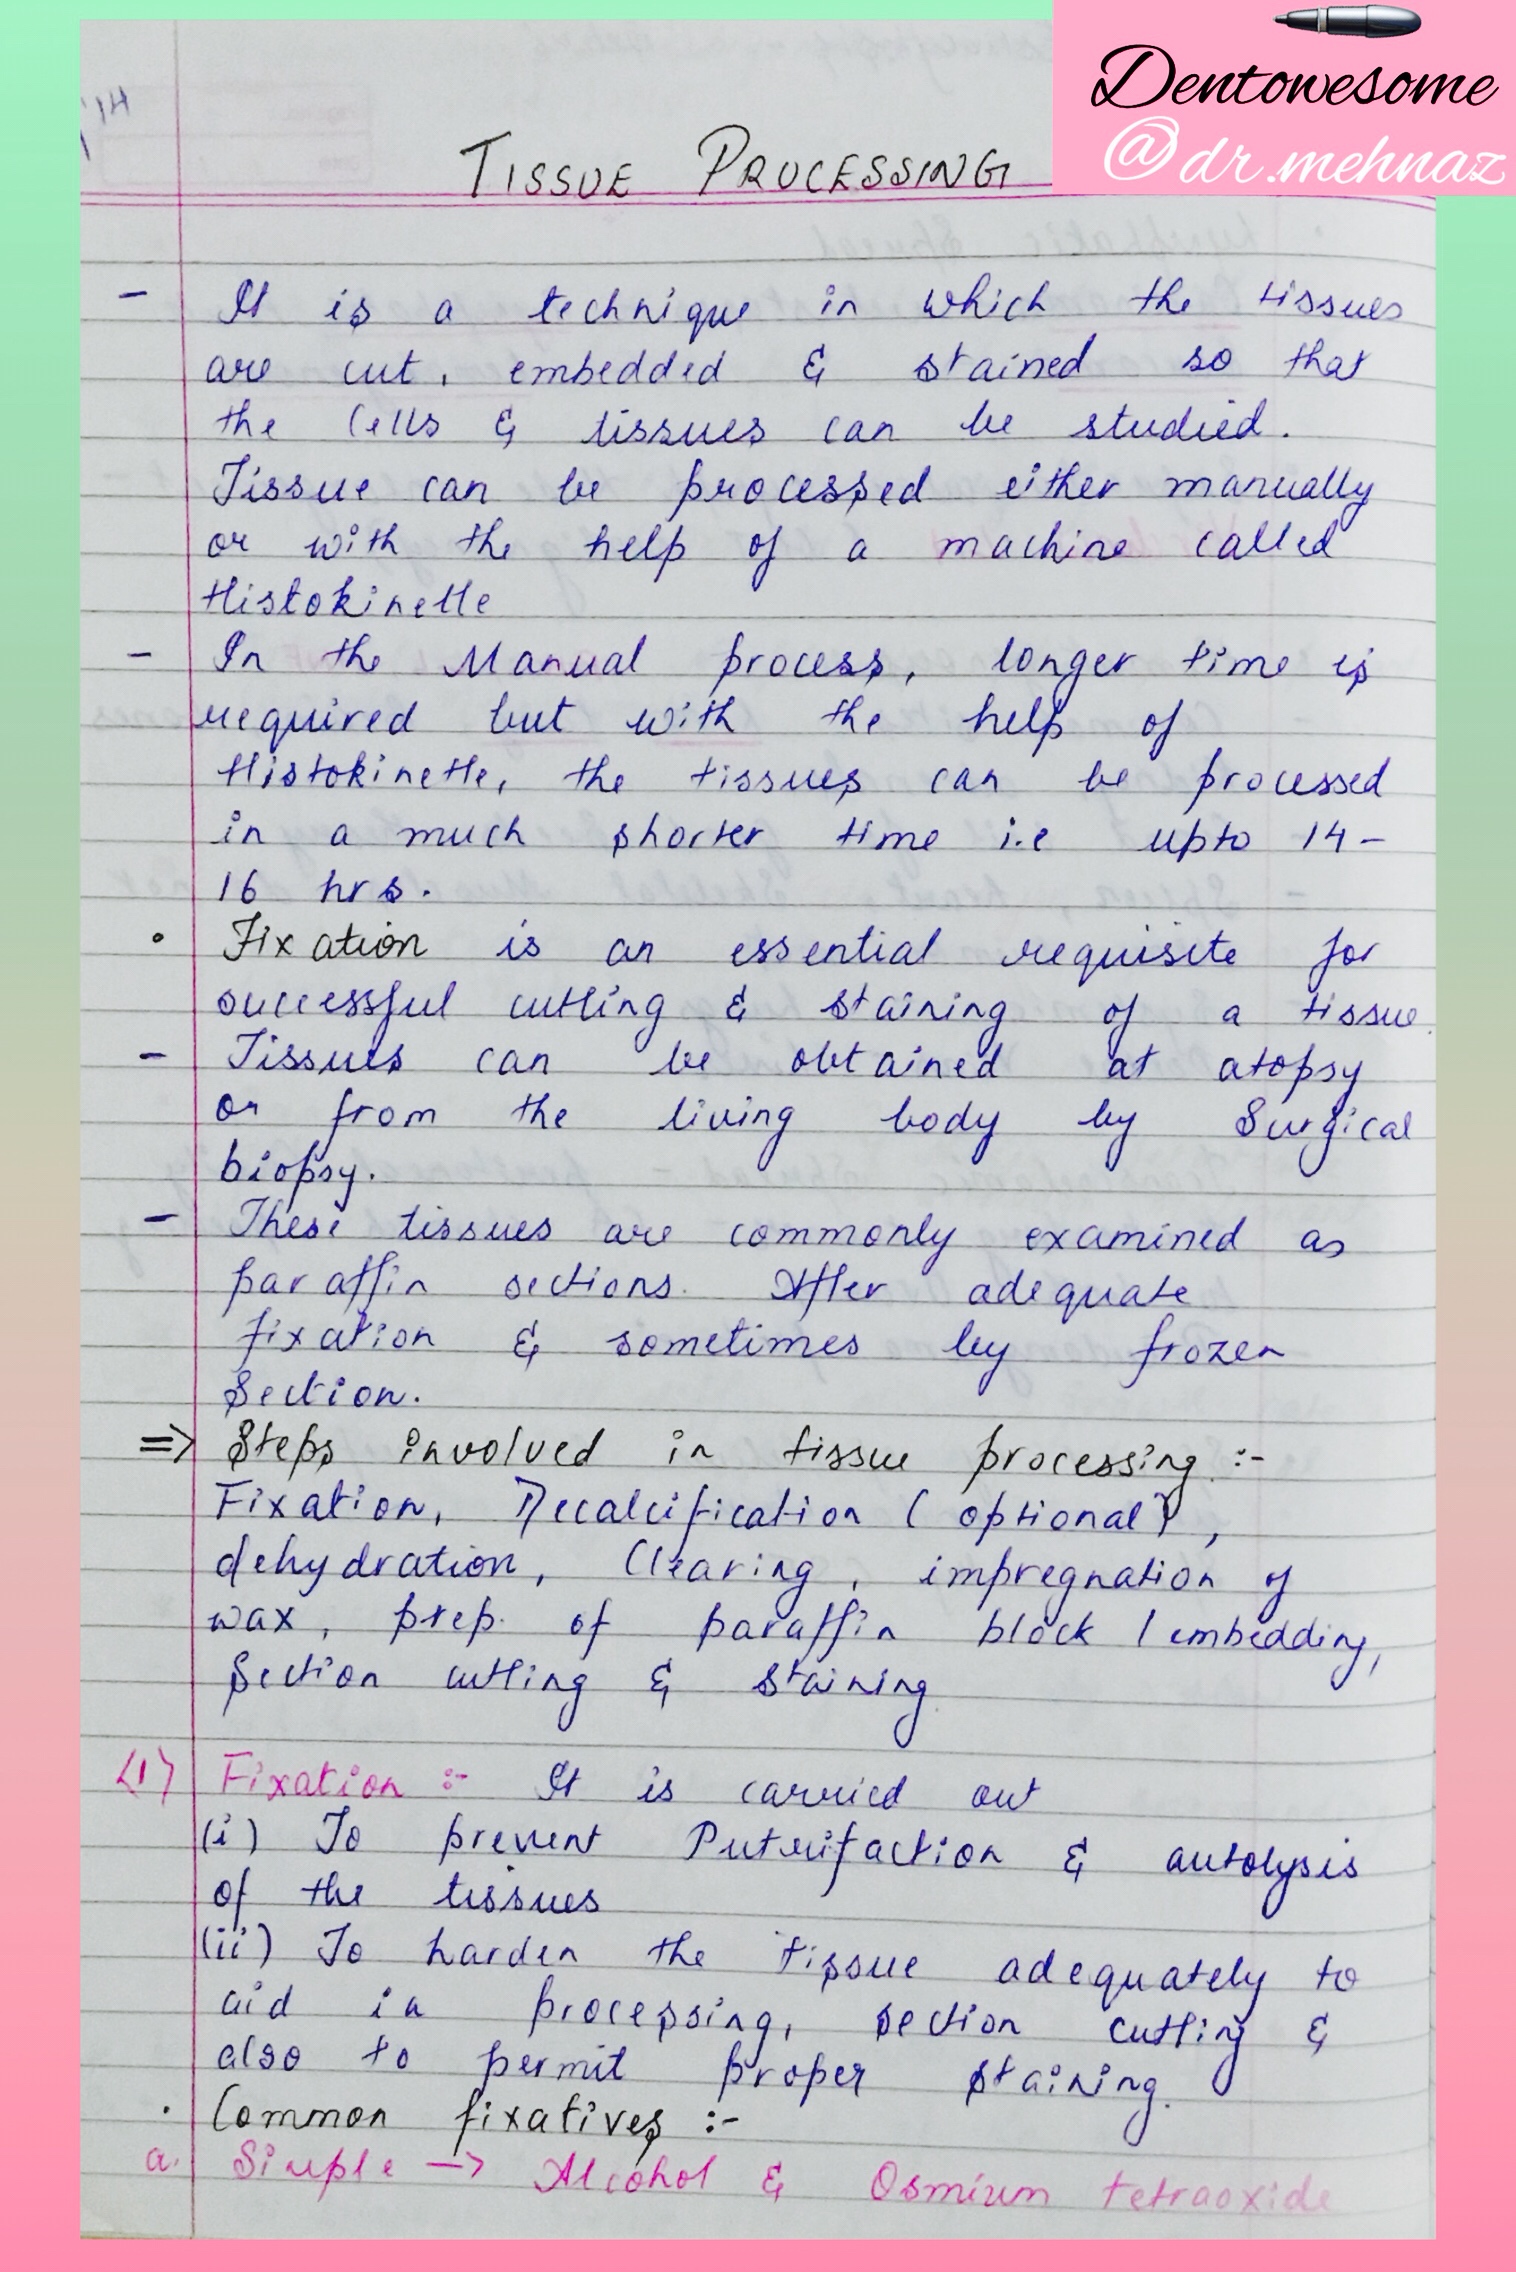 Dentowesome
@dr.mehnaz
TISSUE PROCESSING
- It is a technique in which the tissues
are cut, embedded & stained so that
the cells & tissues can be studied.
Tissue can be processed either manually
or with the help of a machine called
Histokinette
- In the Manual process, longer time is
required but with the help of
Histokinette, the tissues can be processed
in a much shorter time i.e upto 14-
16 hrs.
• Fixation is an essential requisite for
successful cutting & staining of a tissue.
- Tissues can be obtained at atopsy
or from the living body by Surgical
biopsy.
- These tissues are commonly examined as
paraffin sections. After adequate
fixation & sometimes by frozen
Section.
=> Steps involved in tissue processing :-
Fixation, Decalcification (optional),
dehydration, Clearing, impregnation of
wax, prep. of paraffin block / embedding,
Section cutting & staining.
<1> Fixation :- It is carried out
(i) To prevent Putrifaction & autolysis
of the tissues
(ii) To harden the tissue adequately to
aid in processing, section cutting &
also to permit proper staining.
• Common fixatives :-
a. Simple -> Alcohol & Osmium tetraoxide